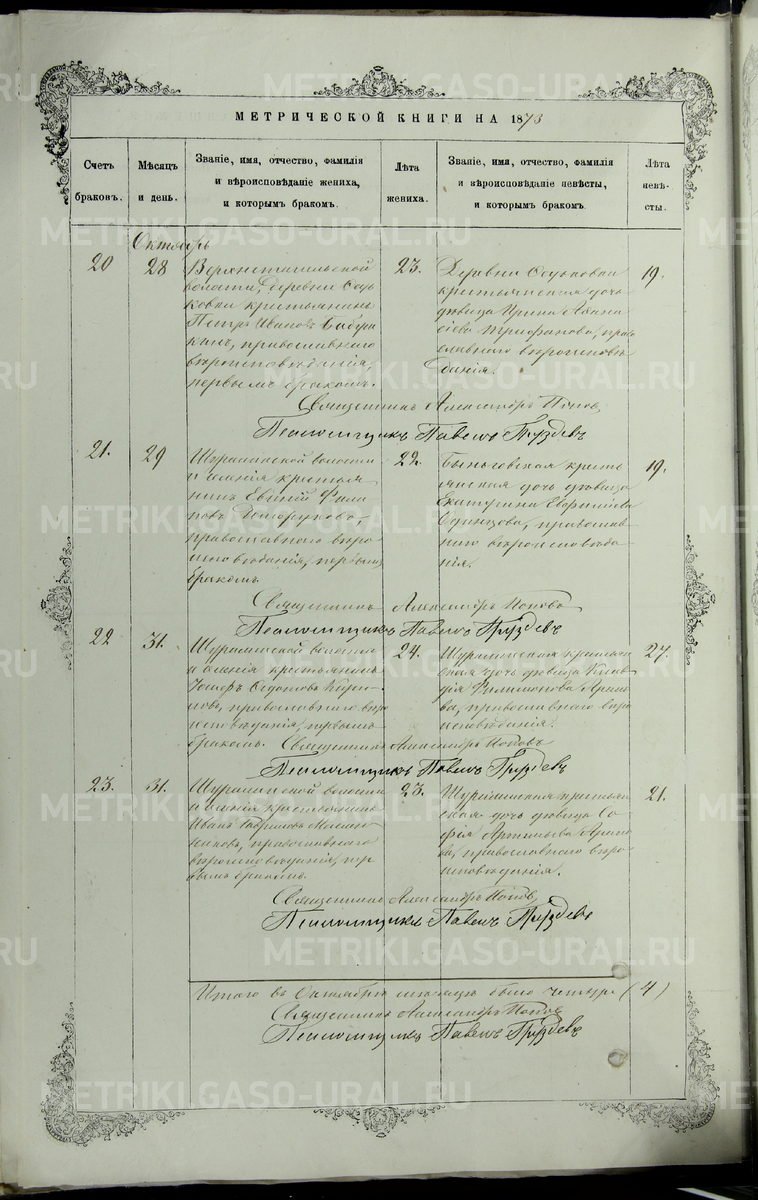 МЕТРИЧЕСКОЙ КНИГИ НА 1873
Счетъ браковъ.
Мѣсяцъ и день.
Званіе, имя, отчество, фамилія
и вѣроисповѣданіе жениха,
и которымъ бракомъ.
Лѣта жениха.
Званіе, имя, отчество, фамилія
и вѣроисповѣданіе невѣсты,
и которымъ бракомъ.
Лѣта невѣсты.
Октябрь
20
28
Верхнетагильской
волости, деревни
крестьянинъ
Петръ Ивановъ
православнаго
вѣроисповѣданія,
первымъ бракомъ.
23.
Деревни
крестьянская дочь
дѣвица Ирина Афана
сіева Трифанова, право
славнаго вѣроисповѣ
данія.
19.
Священникъ Александръ Поповъ
Псаломщикъ Павелъ Груздевъ
21.
29
Шуралинской волости
и селенія крестья
нинъ Евгеній Фили
повъ
православнаго вѣро
исповѣданія, первымъ
бракомъ
22.
Быньговская кресть
янская дочь дѣвица
Екатерина
Одинцова, православ
наго вѣроисповѣда
нія.
19.
Священникъ Александръ Поповъ
Псаломщикъ Павелъ Груздевъ
22
31.
Шуралинской волости
и селенія крестьянинъ
православнаго вѣро
исповѣданія, первымъ
бракомъ.
24.
Шуралинская крестьян
ская дочь дѣвица Клав
дія Филимонова
православнаго вѣро
исповѣданія.
27.
Священникъ Александръ Поповъ
Псаломщикъ Павелъ Груздевъ
23.
31.
Шуралинской волости
и селенія крестьянинъ
Иванъ Гавриловъ
православнаго
вѣроисповѣданія, пер
вымъ бракомъ.
23.
Шуралинская крестьян
ская дочь дѣвица Со
фья Артемьева
православнаго вѣро
исповѣданія.
21.
Священникъ Александръ Поповъ
Псаломщикъ Павелъ Груздевъ
Итого въ Октябрѣ мѣсяцѣ было четыре (4)
Священникъ Александръ Поповъ
Псаломщикъ Павелъ Груздевъ
METRIKI.GASO-URAL.RU